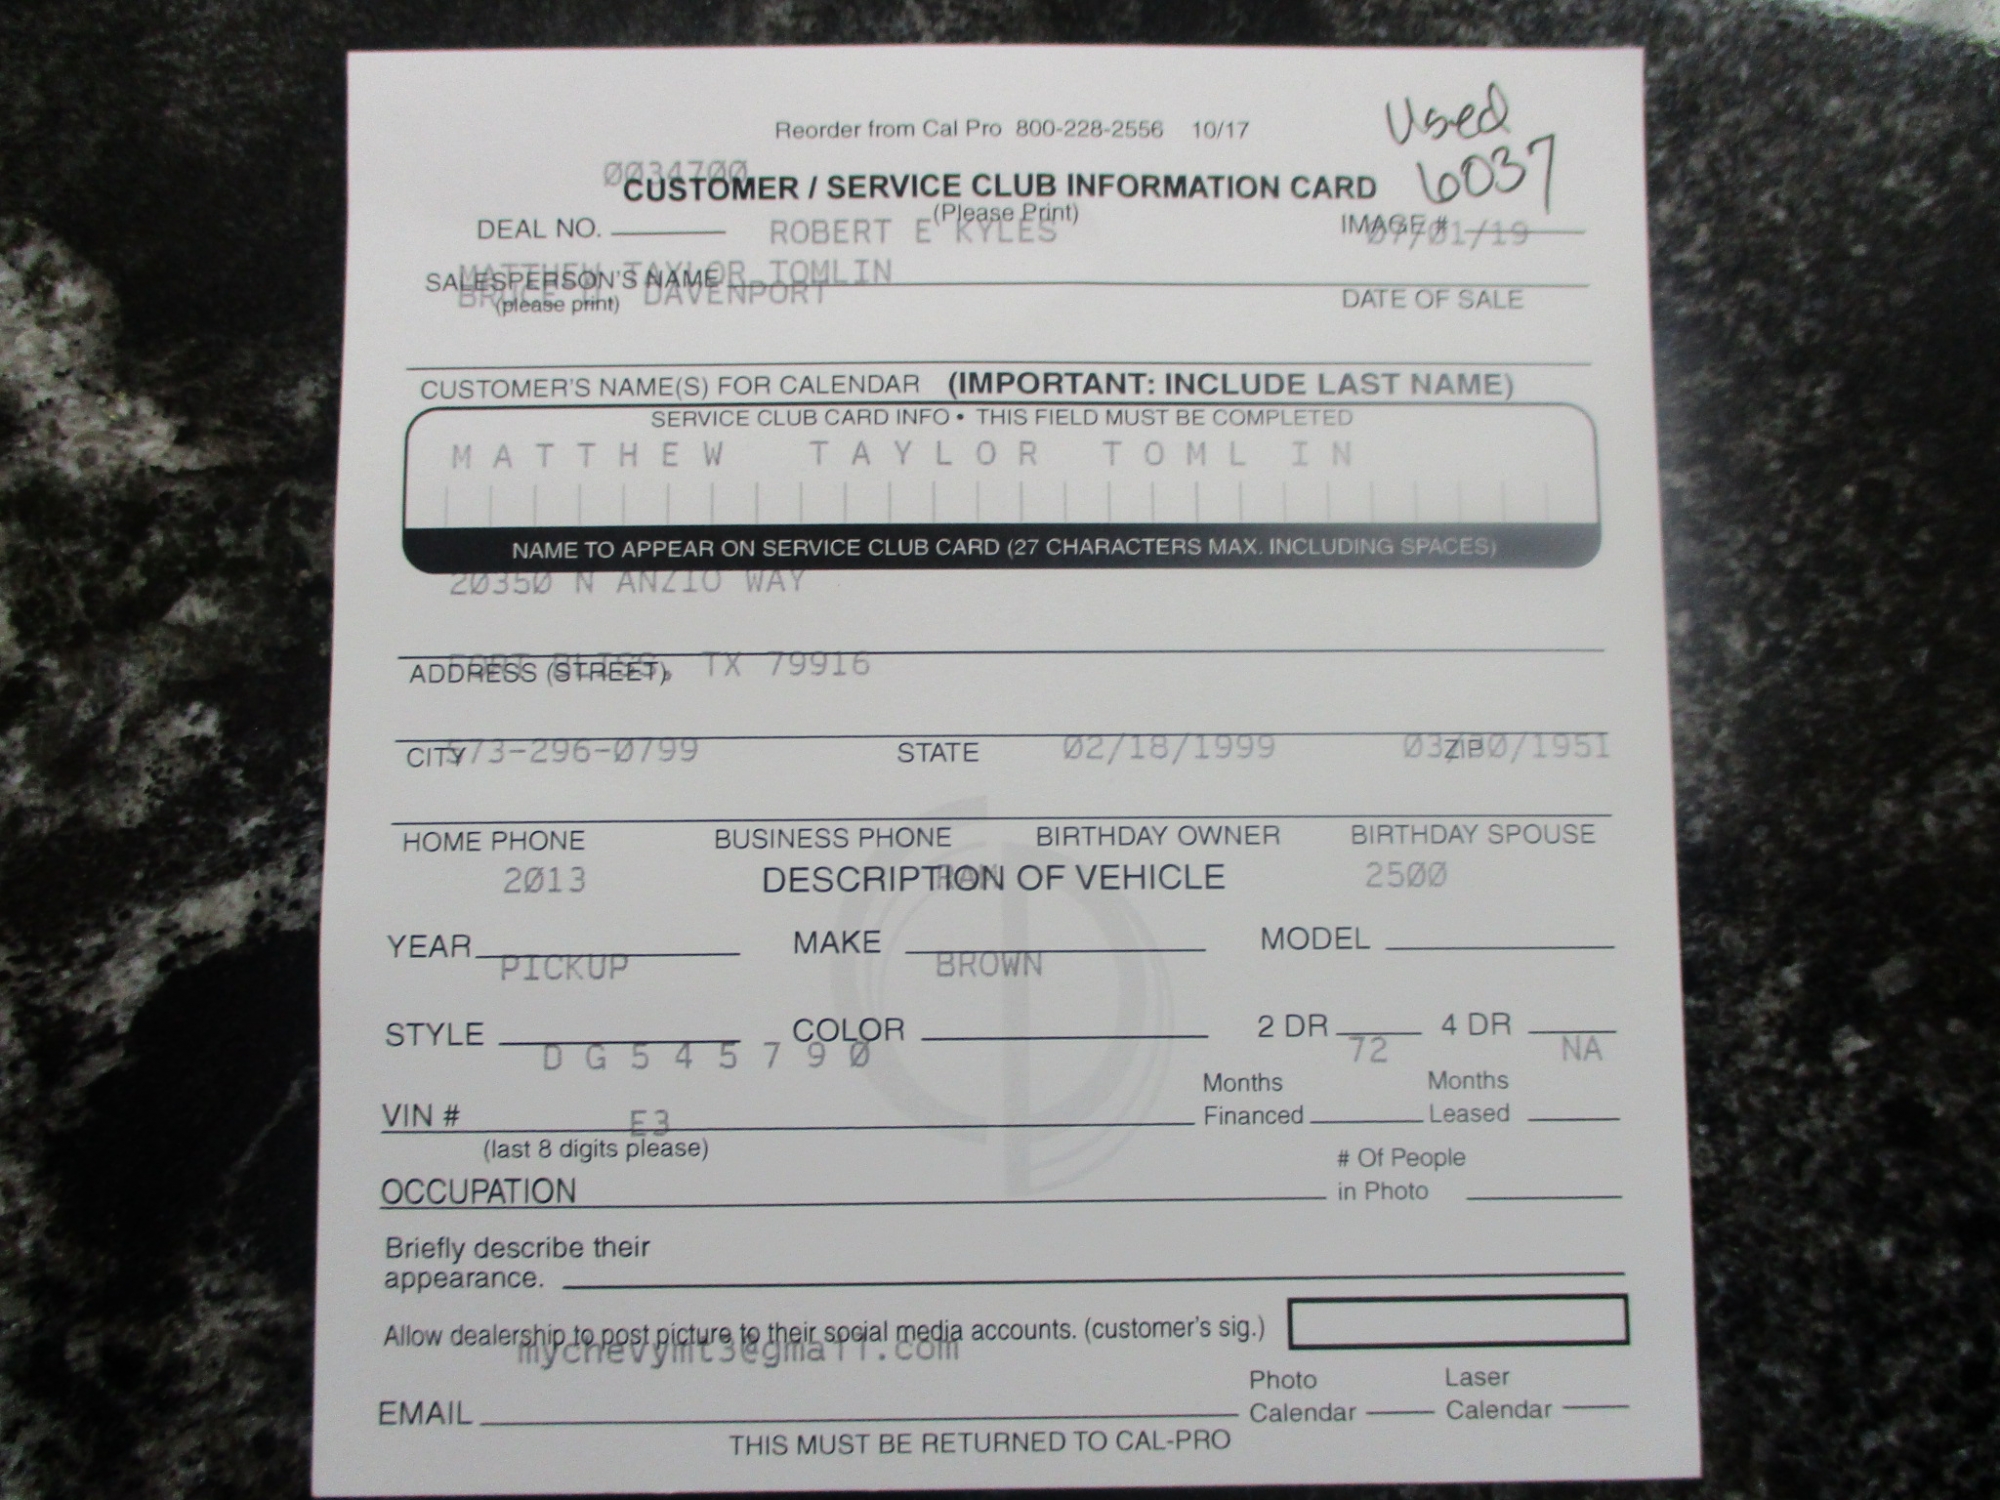 Used
Reorder from Cal Pro 800-228-2556 10/17
6037
0034700
CUSTOMER / SERVICE CLUB INFORMATION CARD
(Please Print)
DEAL NO. ROBERT E KYLES IMAGE # 07/01/19
MATTHEW TAYLOR TOMLIN
SALESPERSON'S NAME
DAVENPORT
(please print) DATE OF SALE
CUSTOMER'S NAME(S) FOR CALENDAR (IMPORTANT: INCLUDE LAST NAME)
SERVICE CLUB CARD INFO • THIS FIELD MUST BE COMPLETED
MATTHEW TAYLOR TOMLIN
NAME TO APPEAR ON SERVICE CLUB CARD (27 CHARACTERS MAX. INCLUDING SPACES)
20350 N ANZIO WAY
FORT BLISS, TX 79916
ADDRESS (STREET)
573-296-0799 02/18/1999
CITY STATE ZIP
HOME PHONE BUSINESS PHONE BIRTHDAY OWNER BIRTHDAY SPOUSE
2013 RAM 2500
DESCRIPTION OF VEHICLE
YEAR MAKE MODEL
PICKUP BROWN
STYLE COLOR 2 DR 4 DR
DG545790 72 NA
VIN # Months Financed Months Leased
E3
(last 8 digits please)
OCCUPATION # Of People in Photo
Briefly describe their
appearance.
Allow dealership to post picture to their social media accounts. (customer's sig.)
mychevymt3@gmail.com
EMAIL Photo Calendar Laser Calendar
THIS MUST BE RETURNED TO CAL-PRO